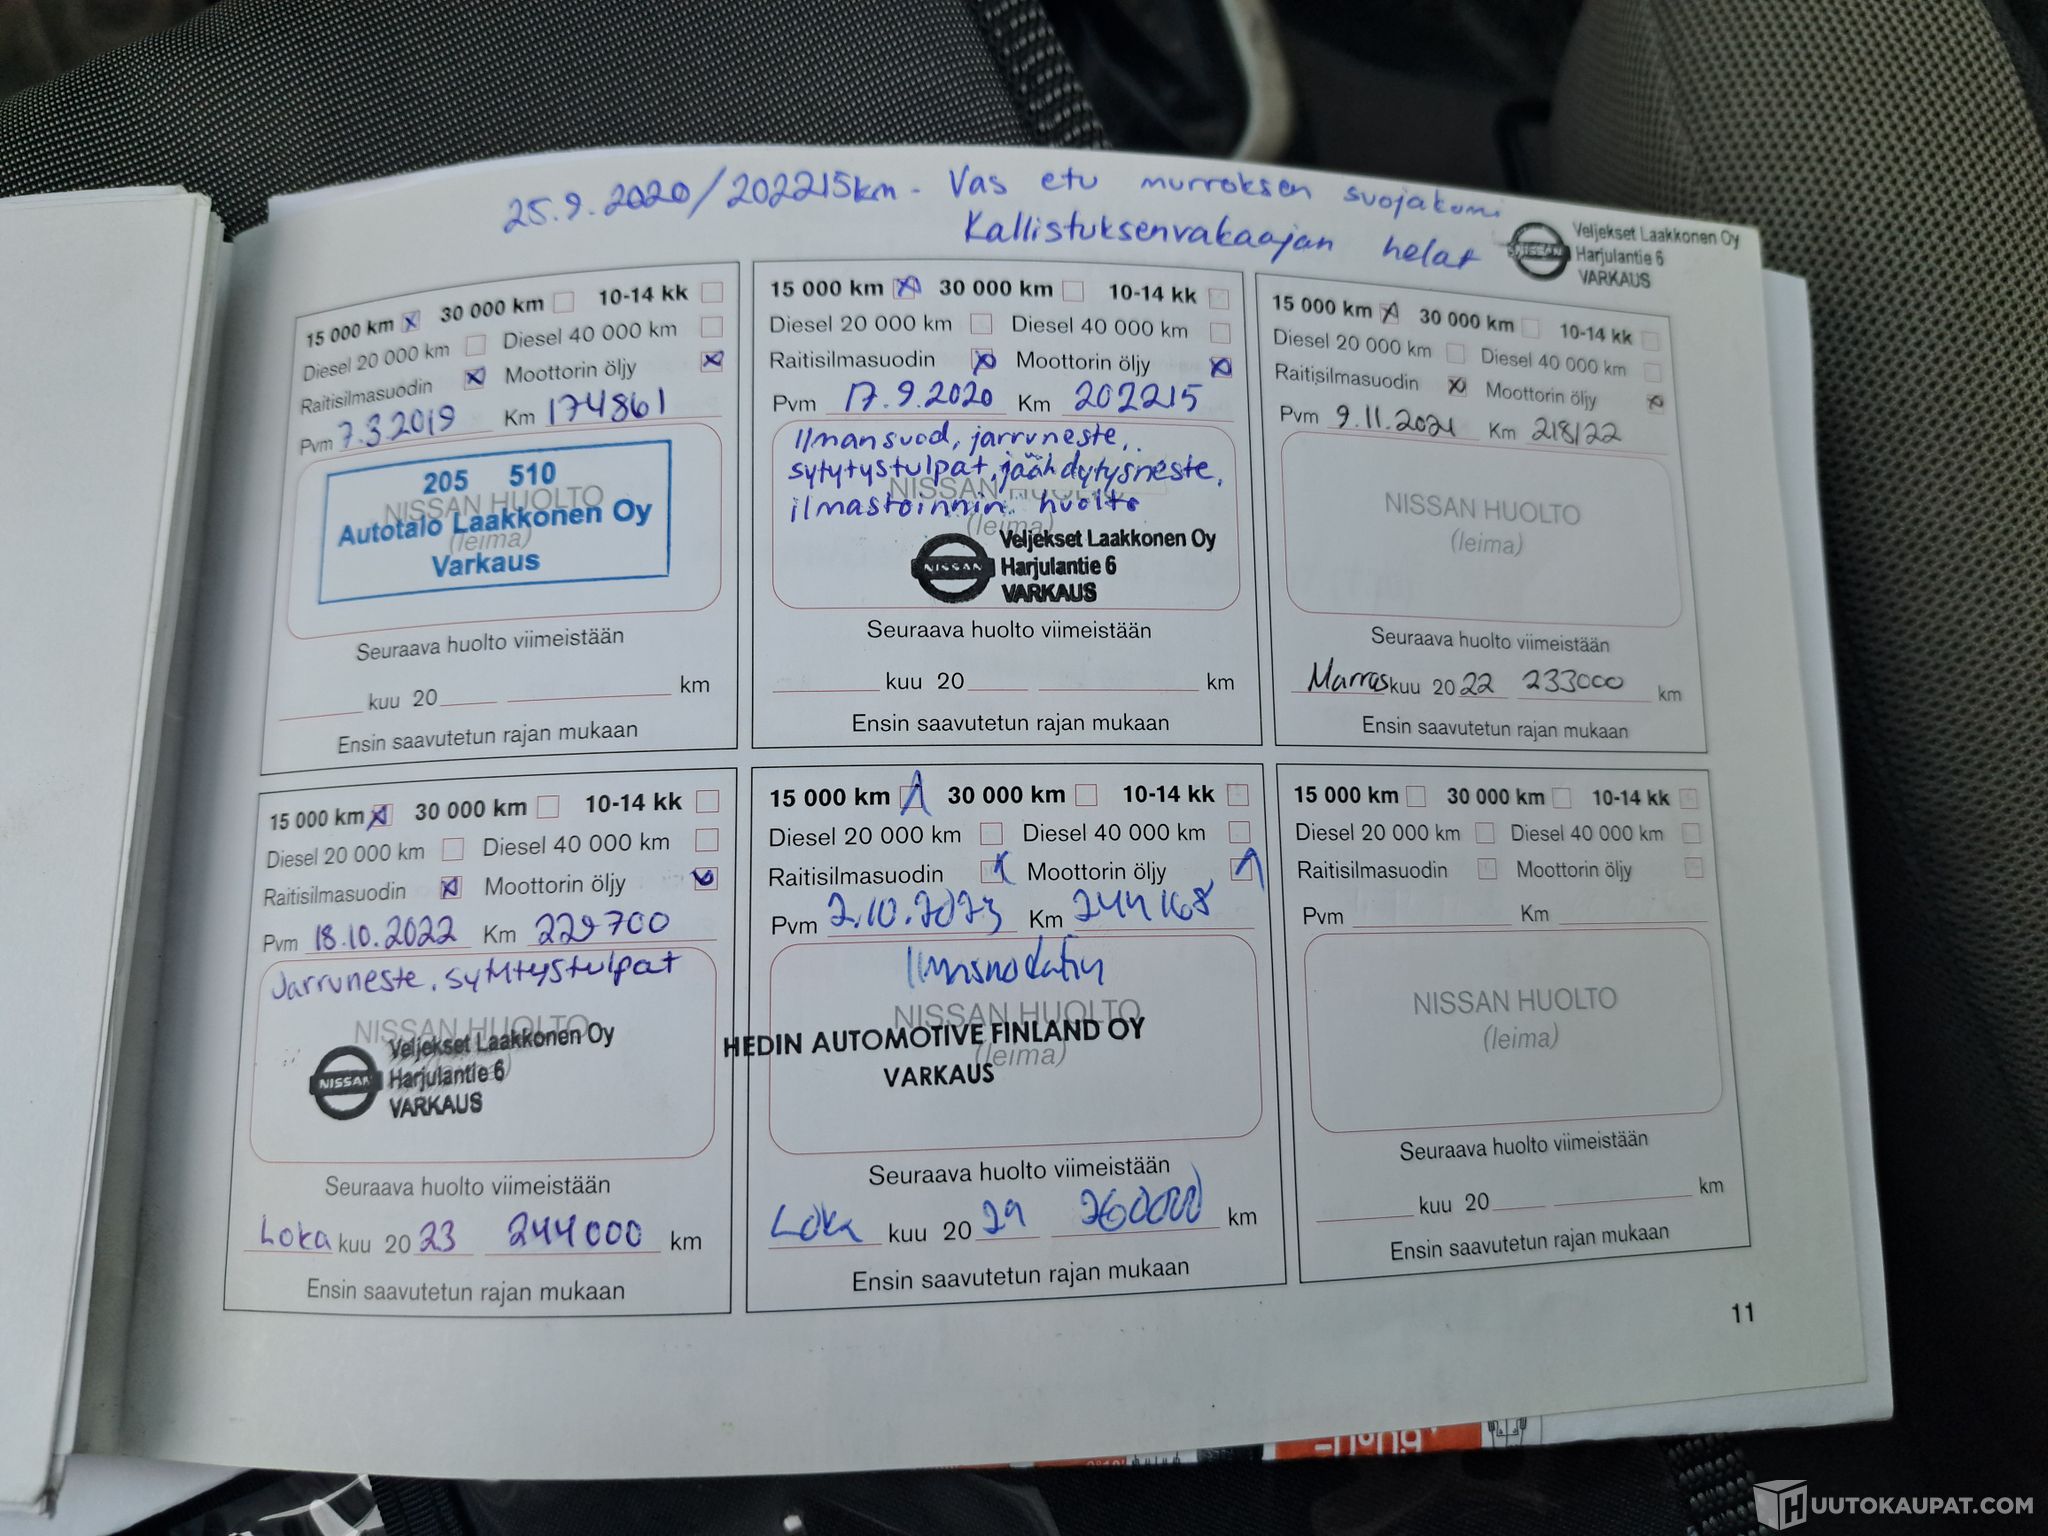 25.9.2020/202215km - Vas etu murroksen suojakumi
Kallistuksenvakaajan helat
NISSAN
Veljekset Laakkonen Oy
Harjulantie 6
VARKAUS
15 000 km 30 000 km 10-14 kk
Diesel 20 000 km Diesel 40 000 km
Raitisilmasuodin Moottorin öljy
Pvm 7.3.2019 Km 174861
205 510
NISSAN HUOLTO
Autotalo Laakkonen Oy
(leima)
Varkaus
Seuraava huolto viimeistään
kuu 20 km
Ensin saavutetun rajan mukaan
15 000 km 30 000 km 10-14 kk
Diesel 20 000 km Diesel 40 000 km
Raitisilmasuodin Moottorin öljy
Pvm 17.9.2020 Km 202215
Ilmansuod, jarruneste,
sytytystulpat, jäähdytysneste,
NISSAN HUOLTO
ilmastoinnin huolto
(leima)
NISSAN
Veljekset Laakkonen Oy
Harjulantie 6
VARKAUS
Seuraava huolto viimeistään
kuu 20 km
Ensin saavutetun rajan mukaan
15 000 km 30 000 km 10-14 kk
Diesel 20 000 km Diesel 40 000 km
Raitisilmasuodin Moottorin öljy
Pvm 9.11.2021 Km 218122
NISSAN HUOLTO
(leima)
Seuraava huolto viimeistään
Marraskuu 20 22 233000 km
Ensin saavutetun rajan mukaan
15 000 km 30 000 km 10-14 kk
Diesel 20 000 km Diesel 40 000 km
Raitisilmasuodin Moottorin öljy
Pvm 18.10.2022 Km 229700
Jarruneste, sytytystulpat
NISSAN HUOLTO
NISSAN
Veljekset Laakkonen Oy
Harjulantie 6
VARKAUS
Seuraava huolto viimeistään
Loka kuu 20 23 244000 km
Ensin saavutetun rajan mukaan
15 000 km 30 000 km 10-14 kk
Diesel 20 000 km Diesel 40 000 km
Raitisilmasuodin Moottorin öljy
Pvm 2.10.2023 Km 244168
NISSAN HUOLTO
HEDIN AUTOMOTIVE FINLAND OY
(leima)
VARKAUS
Seuraava huolto viimeistään
Loka kuu 20 24 260000 km
Ensin saavutetun rajan mukaan
15 000 km 30 000 km 10-14 kk
Diesel 20 000 km Diesel 40 000 km
Raitisilmasuodin Moottorin öljy
Pvm Km
NISSAN HUOLTO
(leima)
Seuraava huolto viimeistään
kuu 20 km
Ensin saavutetun rajan mukaan
11
HUUTOKAUPAT.COM